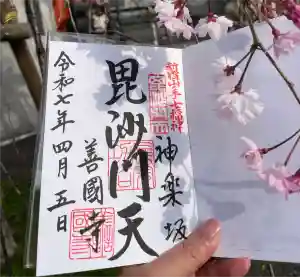 新宿山ノ手七福神
神楽坂
毘沙門天
善國寺
令和七年四月五日